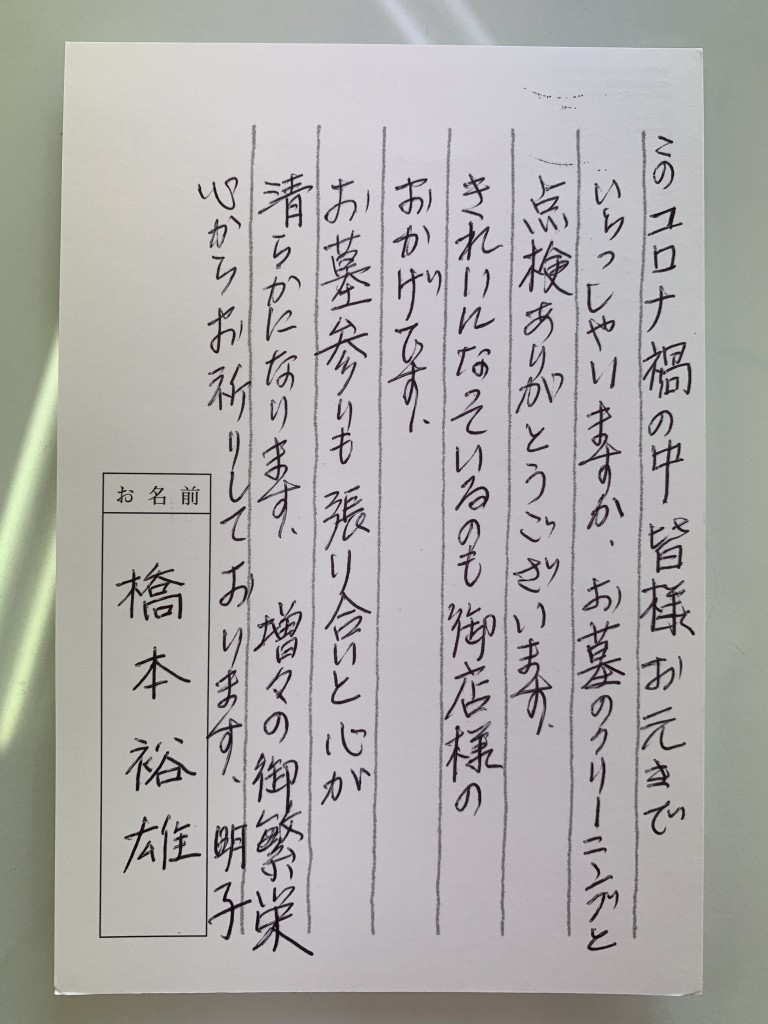 このコロナ禍の中皆様お元きで
いらっしゃいますか、お墓のクリーニングと
点検ありがとうございます、
きれいになっているのも御店様の
おかげです、
お墓参りも張り合いと心が
清らかになります、増々の御繁栄
心からお祈りしております、明子
お名前
橋本裕雄